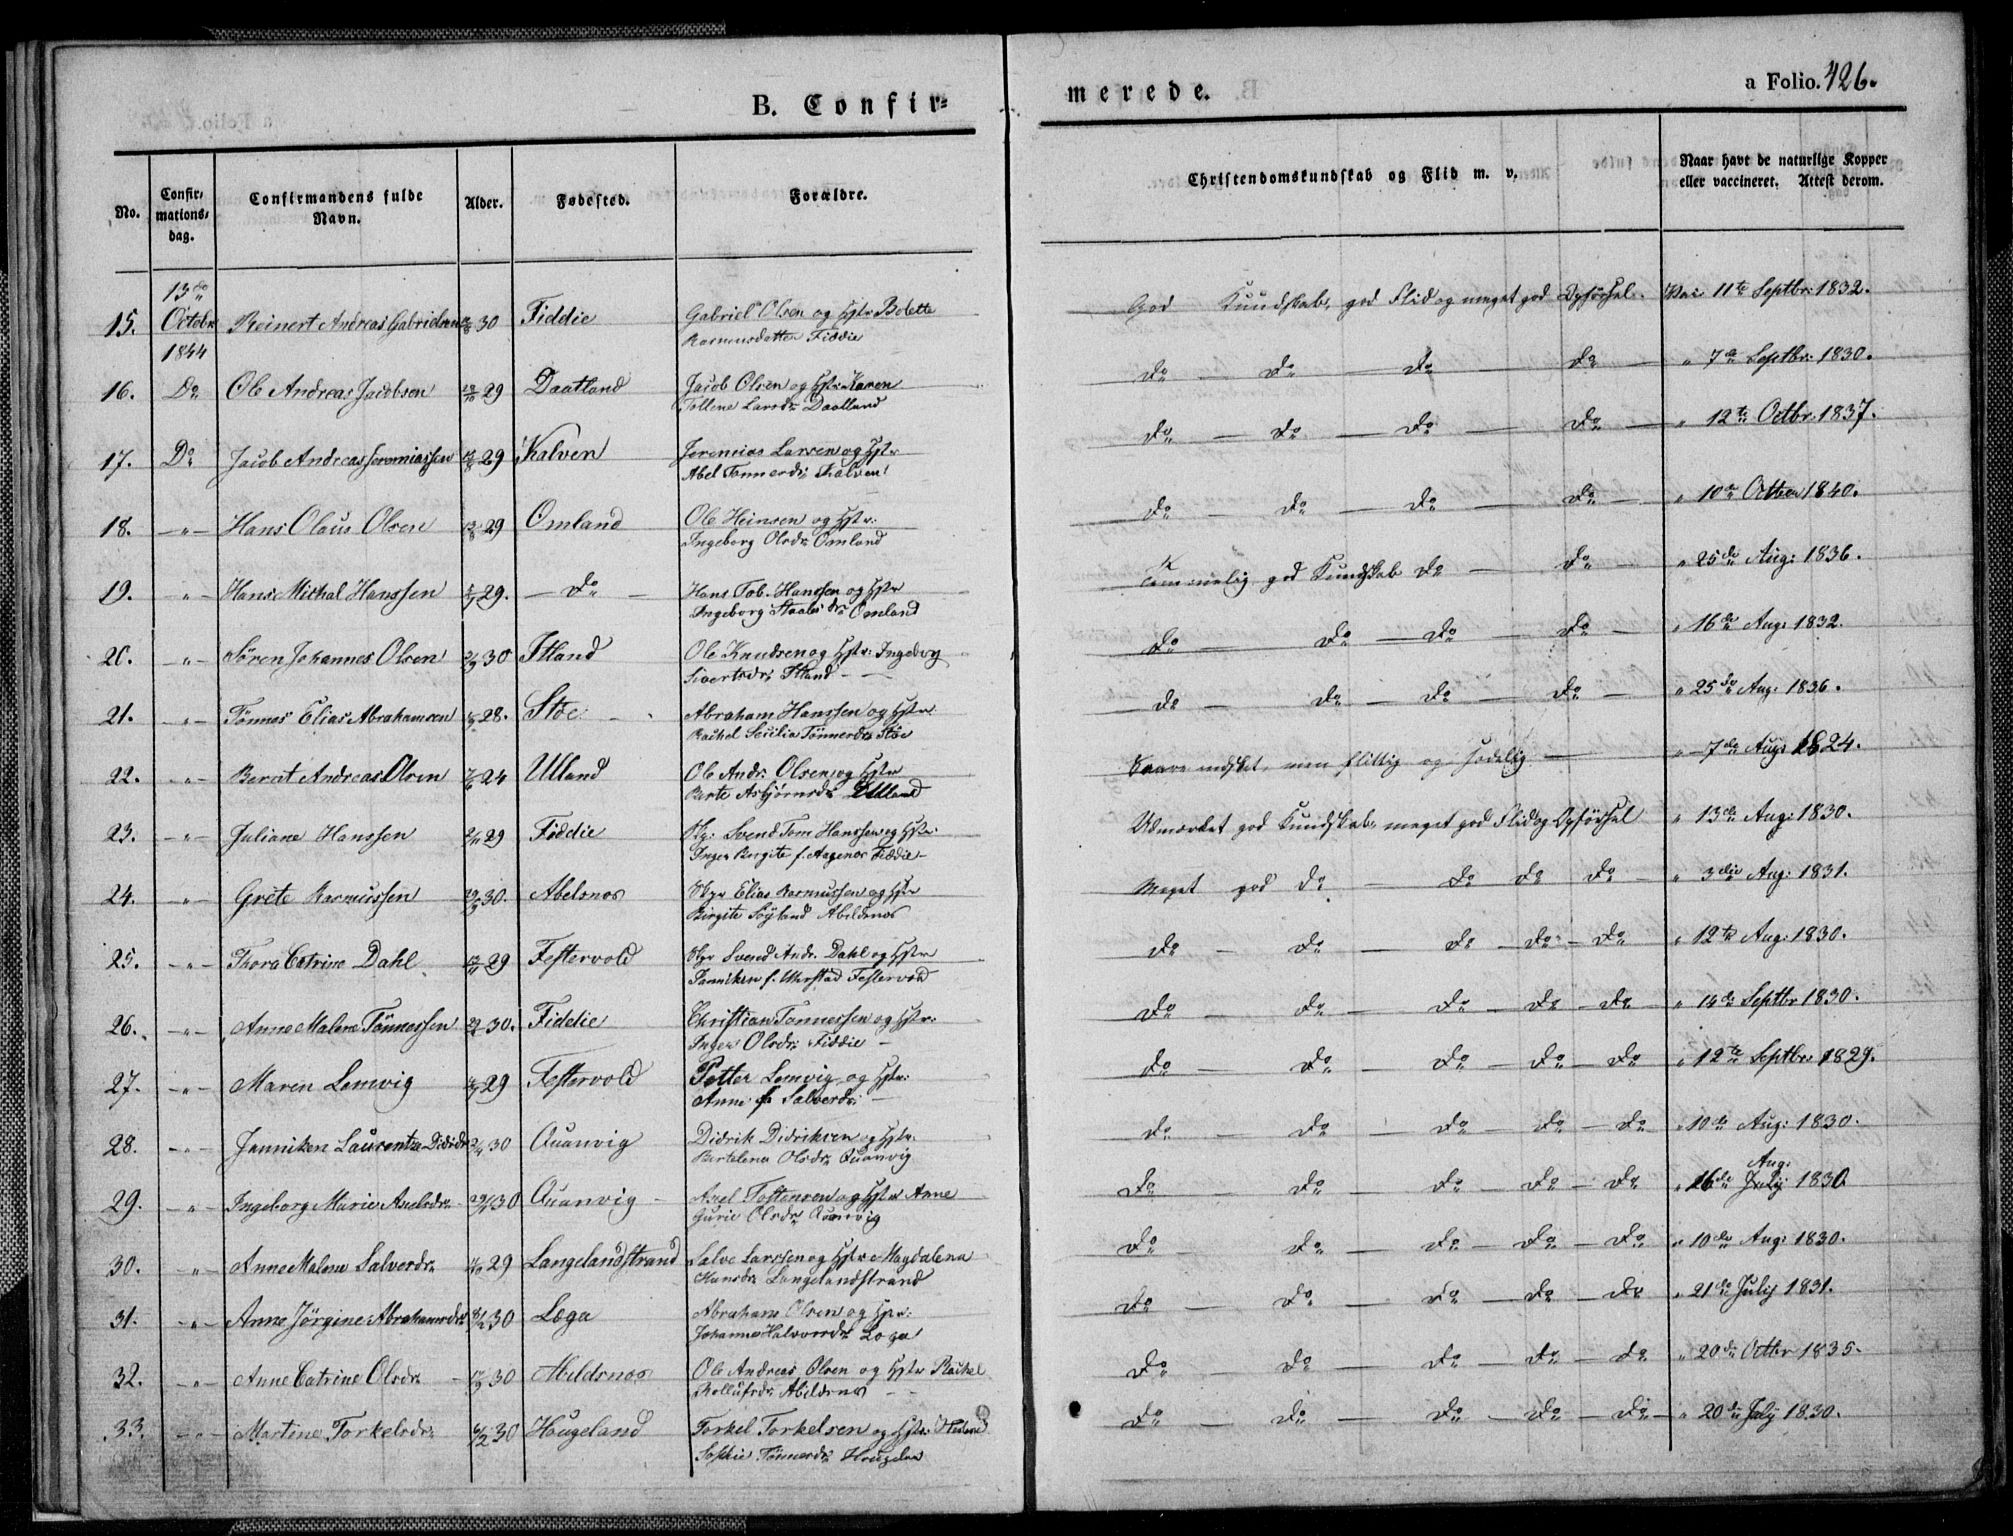 B. Confir=
merede.
a Folio. 426.
No.
Confir-
mations-
dag.
Confirmandens fulde
Navn.
Alder.
Fødested.
Forældre.
Christendomskundskab og Flid m. v.
Naar havt de naturlige Kopper
eller vaccineret. Attest derom.
15. 13de Octobr 1844 Reinert Andreas Gabrielsen 30 Fiddie Gabriel Olsen og Hstr Bolette
Rasmusdatter Fiddie
God Kundskab, god Flid og meget god Opførsel. Vac 11te Septbr: 1832.
16. Do Ole Andreas Jacobsen 29 Daatland Jacob Olsen og Hstr Karen
Tollene Larsdr Daatland
do — do — do — do — " 7de Septbr: 1830.
17. Do Jacob Andreas Jeremiassen 29 Kalven Jeremias Larsen og Hstr
Abel Tønnesdr Kalven
do — do — do — do — " 12te Octbr. 1837.
18. — " — Hans Olaus Olsen 29 Omland Ole Heinsen og Hstr:
Ingeborg Olsdr Omland
do — do — do — do — " 10de 1840.
19. — " — Hans Michal Hanssen 29. — do — Hans Tob. Hanssen og Hstr
Ingeborg Omland
Temmelig god Kundskab do — do — " 25de Aug: 1836.
20. — " — Sören Johannes Olsen 30 Itland Ole Knudsen og Hstr: Ingeborg
Sivertsdr Itland —
do — do — do — do — " 16de Aug: 1832.
21. — " — Tönnes Elias Abrahamsen 28. Stöe Abraham Hanssen og Hstr
Rachel Secilia Tönnesdr Stöe
do — do — do — do — " 25de Aug: 1836.
22. — " — Berent Andreas Olsen 24 Ulland Ole Andr. Olsen og Hstr
Berte Asbjörnsdr Ulland
men flittig og sædelig — " 7de Aug: 1824.
23. — " — Juliane Hanssen 29 Fiddie Svend Tom Hanssen og Hstr.
Inger Birgite f. Aagenes Fiddie —
Udmærket god Kundskab, meget god Flid og Opførsel " 13de Aug: 1830.
24. — " — Grete Rasmussen 30. Abelsnes Elias Rasmussen og Hstr
Birgite Söyland Abildsnes
Meget god do — do do do — " 3die Aug: 1831.
25. — " — Thora Catrine Dahl 29 Festervold Svend Andr. Dahl og Hstr
Janniken f. Festervold
do — do — do — do — do " 12te Aug: 1830.
26. — " — Anne Malene Tönnessen 30. Fiddie Christian Tonnessen og Hstr.
Inger Olsdr Fiddie —
do — do — do — do — do " 14de Septbr 1830.
27. — " — Maren Lemvig 29 Festervold Petter Lemvig og Hstr.
Anne f. Salvesdr —
do — do — do — do — do " 12te Septbr 1829.
28. — " — Janniken Laurentza Didrichsdr 30 Quanvig Didrik Didriksen og Hstr.
Bertelena Olsdr Quanvig
do — do — do — do — do " 10de Aug: 1830.
29. — " — Ingeborg Marie Axelsdr 30 Quanvig — Axel Tostensen og Hstr Anne
Gurie Olsdr Quanvig
do — do — do — do — do Aug:
" 16de July 1830
30. — " — Anne Malene Salvesdr 29 Langelandstrand Salve Larssen og Hstr Magdalena
Hansdr Langelandstrand
do — do — do — do — do " 10de Aug: 1830.
31. — " — Anne Jörgine Abrahamsdr 30 Loga Abraham Olsen og Hstr.
Johanne Halvorsdr Loga
do — do — do — do — do " 21de July 1831.
32. — " — Anne Catrine Olsdr 30 Abildsnes Ole Andreas Olsen og Hstr Rachel
Rollufsdr Abildsnes — —
do — do — do — do — do " 20de Octbr 1835.
33. — " — Martine Torkelsdr 30 Hougeland Torkel Torkelsen og Hstr:
Sophie Tönnesdr
do — do — do — do — do — " 20de July 1830.